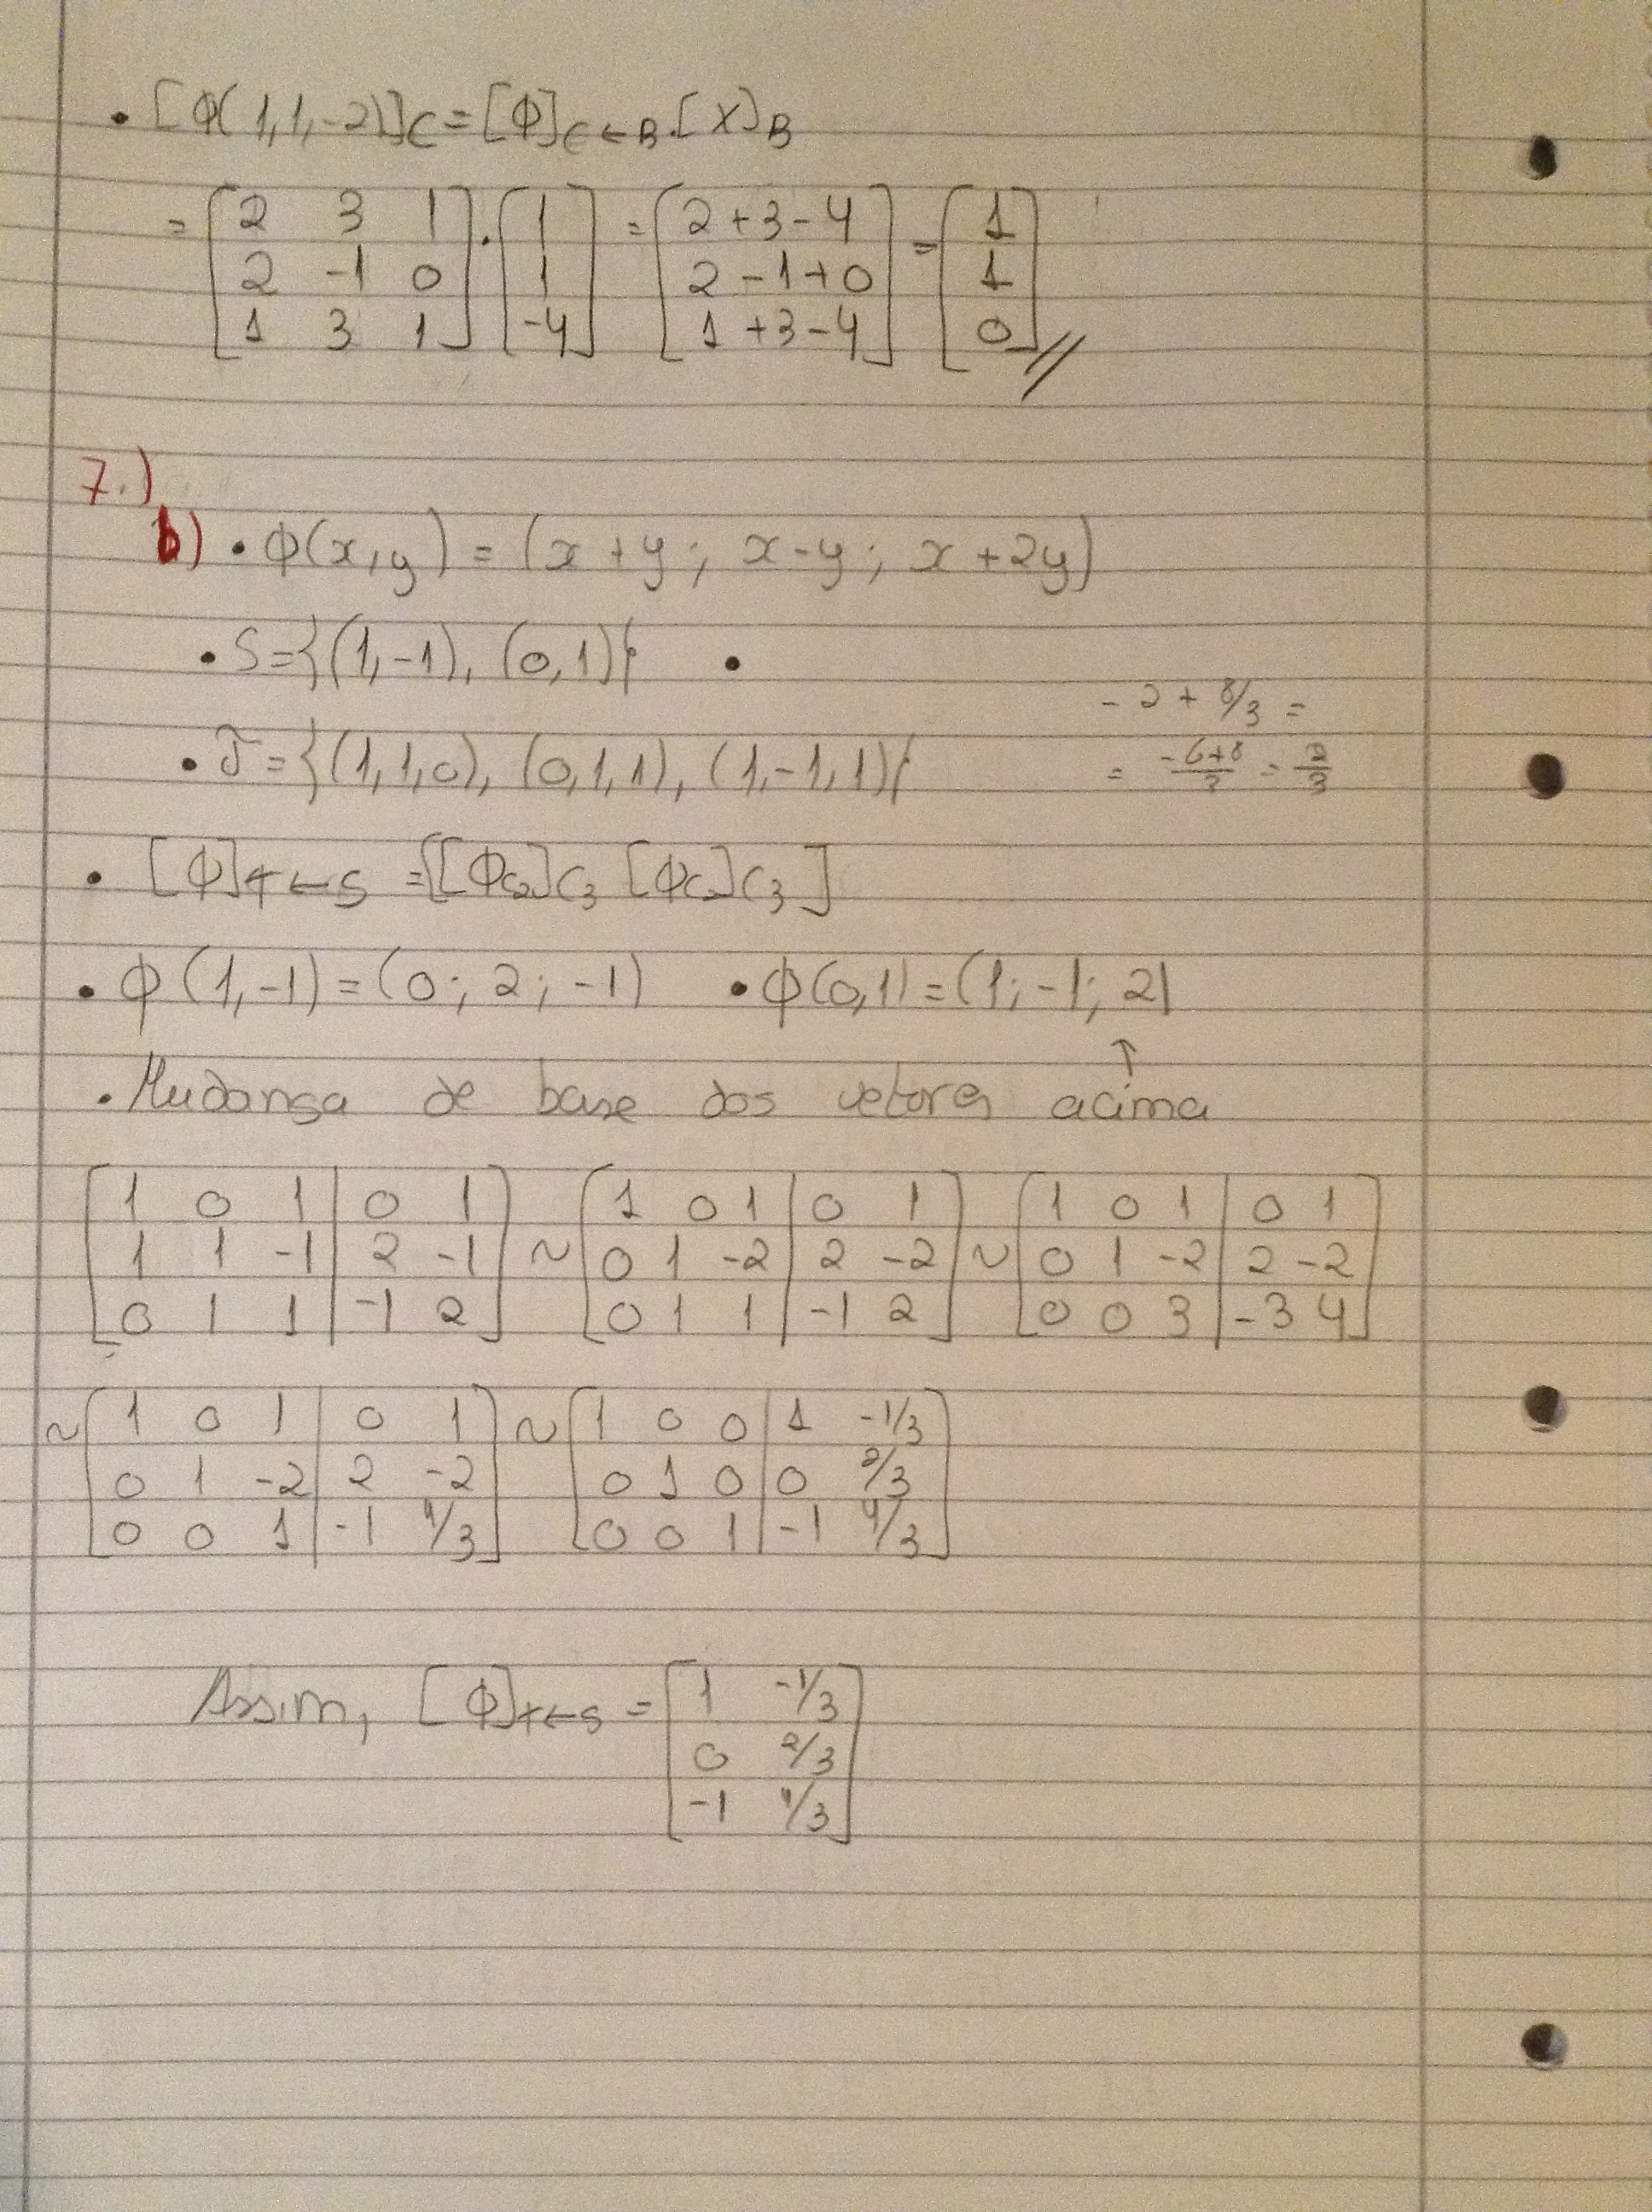 • [Φ(1,1,-2)]C = [Φ]C←B · [X]B
= [2 3 1; 2 -1 0; 1 3 1] · [1; 1; -4] = [2+3-4; 2-1+0; 1+3-4] = [1; 1; 0] //
7.)
b) • Φ(x,y) = (x+y; x-y; x+2y)
• S={(1,-1), (0,1)} •
-2 + 8/3 =
• T={(1,1,0), (0,1,1), (1,-1,1)}
= -6+8/3 = 2/3
• [Φ]T←S = [[Φc2]C3 [Φc2]C3]
• Φ(1,-1) = (0; 2; -1) • Φ(0,1) = (1; -1; 2)
↑
• Mudança de base dos vetores acima
[1 0 1 | 0 1; 1 1 -1 | 2 -1; 0 1 1 | -1 2] ~ [1 0 1 | 0 1; 0 1 -2 | 2 -2; 0 1 1 | -1 2] ~ [1 0 1 | 0 1; 0 1 -2 | 2 -2; 0 0 3 | -3 4]
~ [1 0 1 | 0 1; 0 1 -2 | 2 -2; 0 0 1 | -1 4/3] ~ [1 0 0 | 1 -1/3; 0 1 0 | 0 2/3; 0 0 1 | -1 4/3]
Assim, [Φ]T←S = [1 -1/3; 0 2/3; -1 4/3]